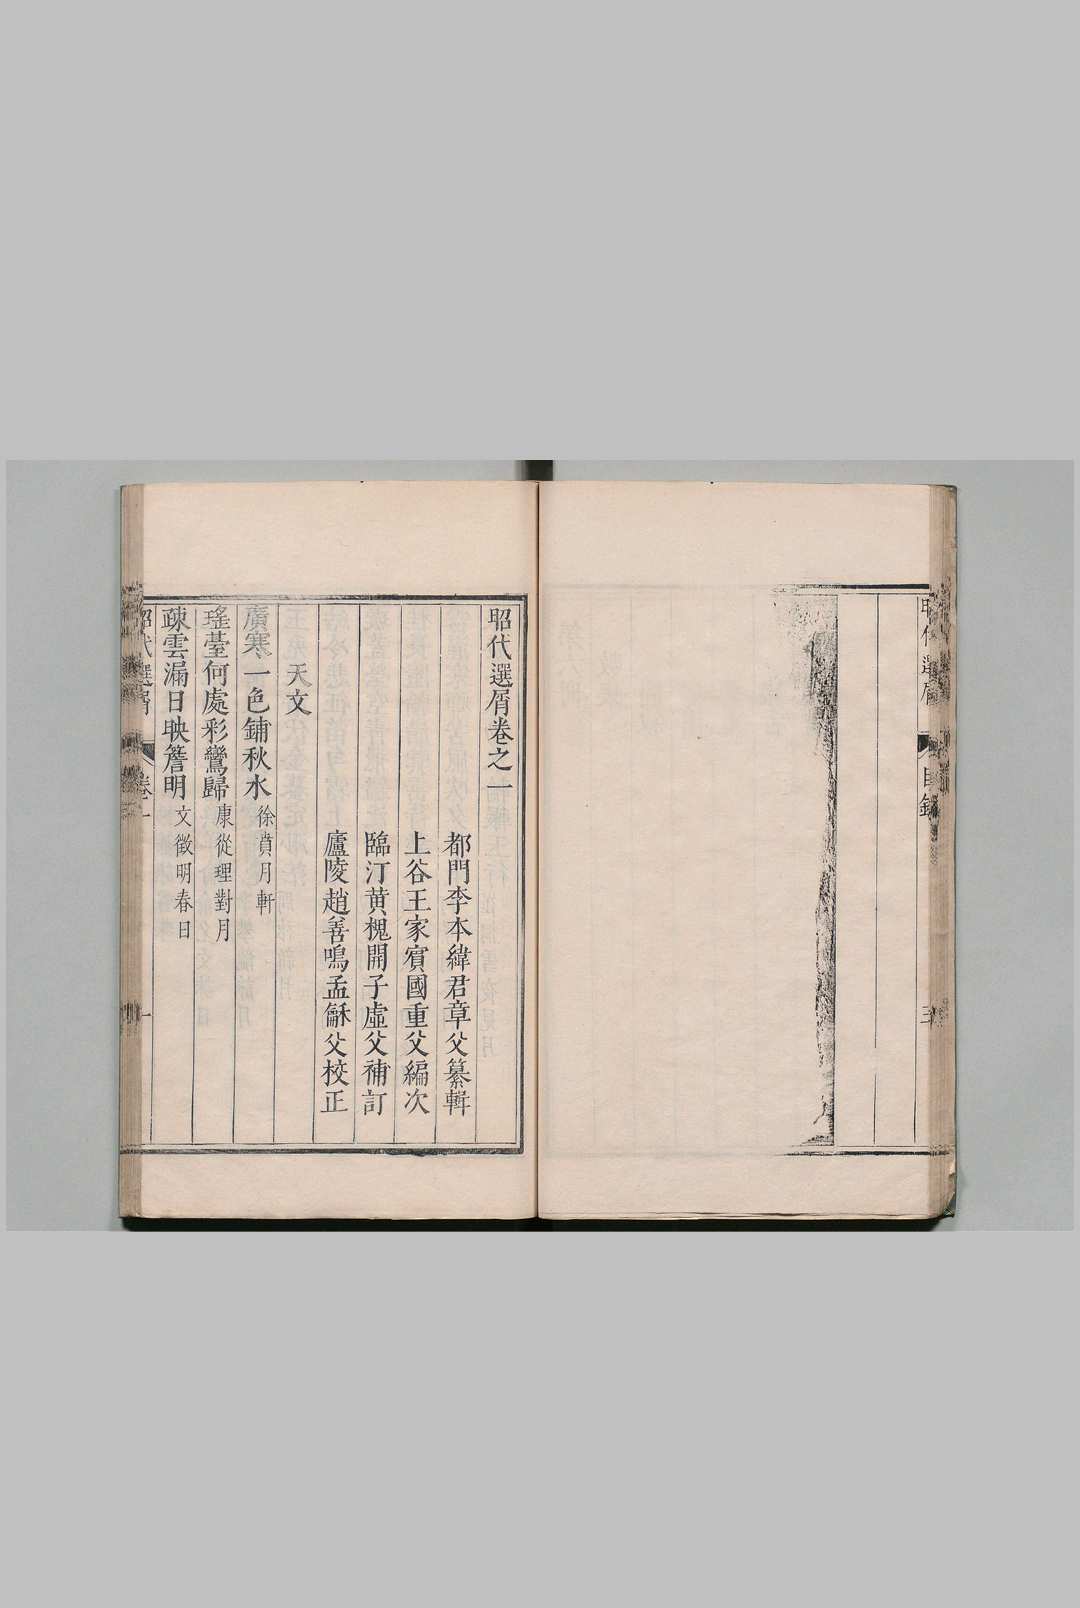 昭代選屑
目錄
三
昭代選屑卷之一
都門李本緯君章父纂輯
上谷王家賓國重父編次
臨汀黃槐開子虛父補訂
廬陵趙善鳴孟龢父校正
天文
廣寒一色鋪秋水 徐賁月軒
瑤臺何處彩鸞歸 康從理對月
疎雲漏日映簷明 文徵明春日
昭代選屑
卷一
一